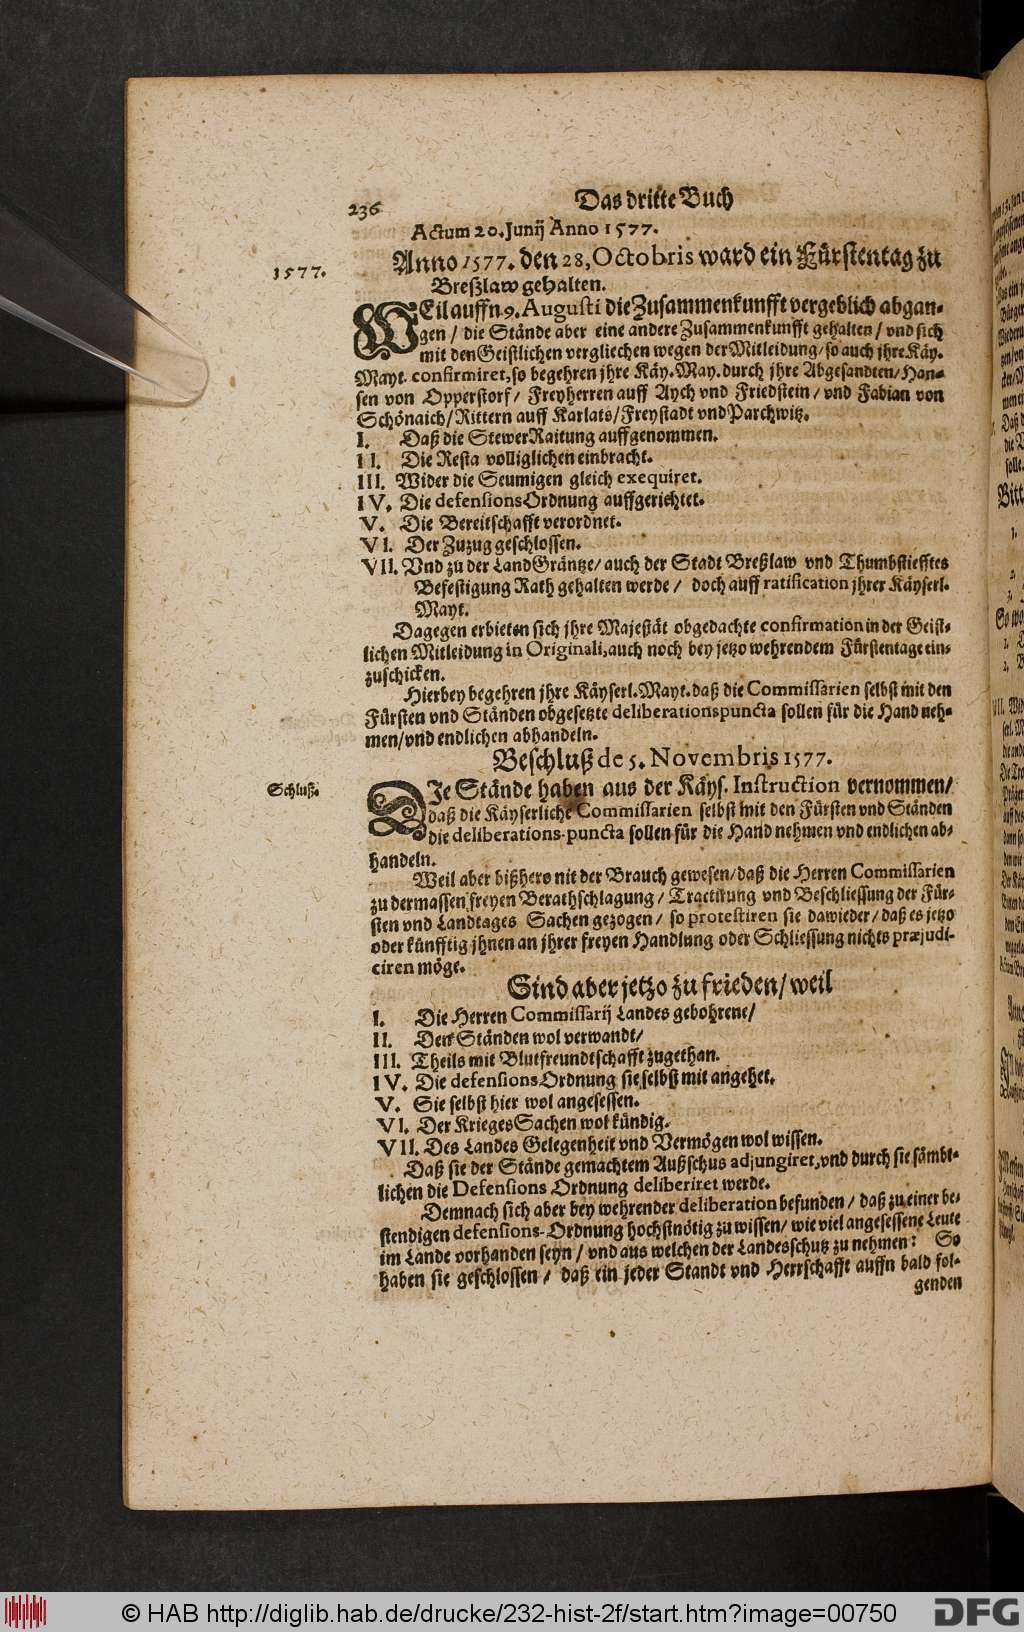 236 Das dritte Buch
Actum 20. Junij Anno 1577.
1577. Anno 1577. den 28. Octobris ward ein Fürstentag zu
Breßlaw gehalten.
WEil auffn 9. Augusti die Zusammenkunfft vergeblich abgan-
gen / die Stände aber eine andere Zusammenkunfft gehalten / vnd sich
mit den Geistlichen vergliechen wegen der Mitleidung / so auch jhre Käy.
Mayt. confirmiret, so begehren jhre Käy. May. durch jhre Abgesandten / Han-
sen von Opperstorf / Freyherren auff Aych vnd Friedstein / vnd Fabian von
Schönaich / Rittern auff Karlats / Freystadt vnd Parchwitz.
I. Daß die Stewer Raitung auffgenommen.
II. Die Resta volliglichen einbracht.
III. Wider die Seumigen gleich exequiret.
IV. Die defensions Ordnung auffgerichtet.
V. Die Bereitschafft verordnet.
VI. Der Zuzug geschlossen.
VII. Vnd zu der LandGräntze / auch der Stadt Breßlaw vnd Thumbstiefftes
Befestigung Rath gehalten werde / doch auff ratification jhrer Käyserl.
Mayt.
Dagegen erbieten sich jhre Majestät obgedachte confirmation in der Geist-
lichen Mitleidung in Originali, auch noch bey jetzo wehrendem Fürstentage ein-
zuschicken.
Hierbey begehren jhre Käyserl. Mayt. daß die Commissarien selbst mit den
Fürsten vnd Ständen obgesetzte deliberationspuncta sollen für die Hand neh-
men / vnd endlichen abhandeln.
Beschluß de 5. Novembris 1577.
Schluß. DIe Stände haben aus der Käys. Instruction vernommen /
daß die Käyserliche Commissarien selbst mit den Fürsten vnd Ständen
die deliberations-puncta sollen für die Hand nehmen vnd endlichen ab-
handeln.
Weil aber bißhero nit der Brauch gewesen / daß die Herren Commissarien
zu dermassen freyen Berathschlagung / Tractirung vnd Beschliessung der Für-
sten vnd Landtages Sachen gezogen / so protestiren sie dawieder / daß es jetzo
oder künfftig jhnen an jhrer freyen Handlung oder Schliessung nichts præjudi-
ciren möge.
Sind aber jetzo zu frieden / weil
I. Die Herren Commissarij Landes gebohrene /
II. Den Ständen wol verwandt /
III. Theils mit Blutfreundtschafft zugethan.
IV. Die defensions Ordnung sie selbst mit angehet.
V. Sie selbst hier wol angesessen.
VI. Der Krieges Sachen wol kündig.
VII. Des Landes Gelegenheit vnd Vermögen wol wissen.
Daß sie der Stände gemachtem Außschus adjungiret, vnd durch sie sämbt-
lichen die Defensions Ordnung deliberiret werde.
Demnach sich aber bey wehrender deliberation befunden / daß zu einer be-
stendigen defensions-Ordnung hochstnötig zu wissen / wie viel angesessene Leute
im Lande vorhanden seyn / vnd aus welchen der Landesschutz zu nehmen: So
haben sie geschlossen / daß ein jeder Standt vnd Herrschafft auffn bald fol-
genden
© HAB http://diglib.hab.de/drucke/232-hist-2f/start.htm?image=00750 DFG